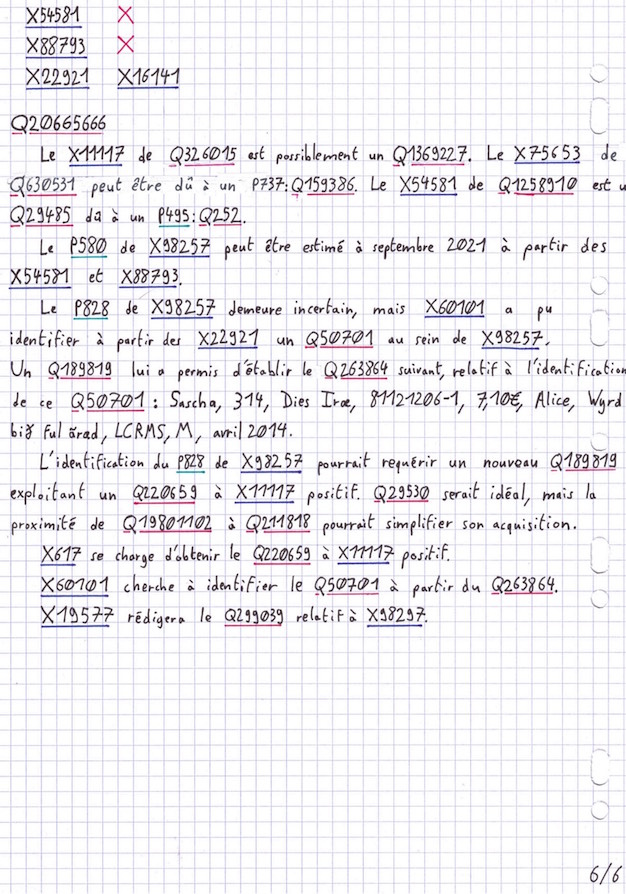 X54581 X
X88793 X
X22921 X16141
Q20665666
Le X11117 de Q326015 est possiblement un Q1369227. Le X75653 de
Q630531 peut être dû à un P737:Q159386. Le X54581 de Q1258910 est u
Q29485 dû à un P495:Q252.
Le P580 de X98257 peut être estimé à septembre 2021 à partir des
X54581 et X88793.
Le P828 de X98257 demeure incertain, mais X60101 a pu
identifier à partir des X22921 un Q50701 au sein de X98257.
Un Q189819 lui a permis d'établir le Q263864 suivant, relatif à l'identification
de ce Q50701 : Sascha, 314, Dies Iræ, 81121206-1, 7,10€, Alice, Wyrd
bið ful ārǣd, LCRMS, M, avril 2014.
L'identification du P828 de X98257 pourrait requérir un nouveau Q189819
exploitant un Q220659 à X11117 positif. Q29530 serait idéal, mais la
proximité de Q19801102 à Q211818 pourrait simplifier son acquisition.
X617 se charge d'obtenir le Q220659 à X11117 positif.
X60101 cherche à identifier le Q50701 à partir du Q263864.
X19577 rédigera le Q299039 relatif à X98297.
6/6